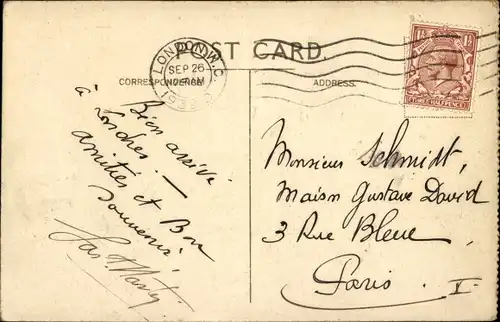 POST CARD.
LONDON. W.C.
SEP 26
1933
CORRESPONDENCE
ADDRESS.
THREE HALFPENCE
Bien arrivé
à Londres —
amitiés et Bon
souvenir
Monsieur Schmidt,
Maison Gustave David
3 Rue Bleue,
Paris. V